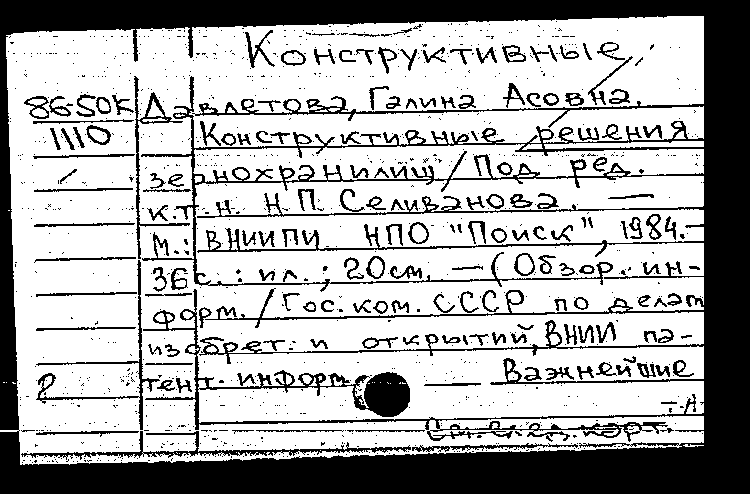 Конструктивные
86-50К Давлетова, Галина Асовна.
1110 Конструктивные решения
зернохранилищ / Под ред.
к.т.н. Н.П. Селиванова. —
М.: ВНИИПИ НПО "Поиск", 1984.-
36 с. : ил. ; 20 см. — (Обзор. ин-
форм. / Гос. ком. СССР по делам
изобрет. и открытий, ВНИИ па-
тент. информ. — Важнейшие
См. след. карт.